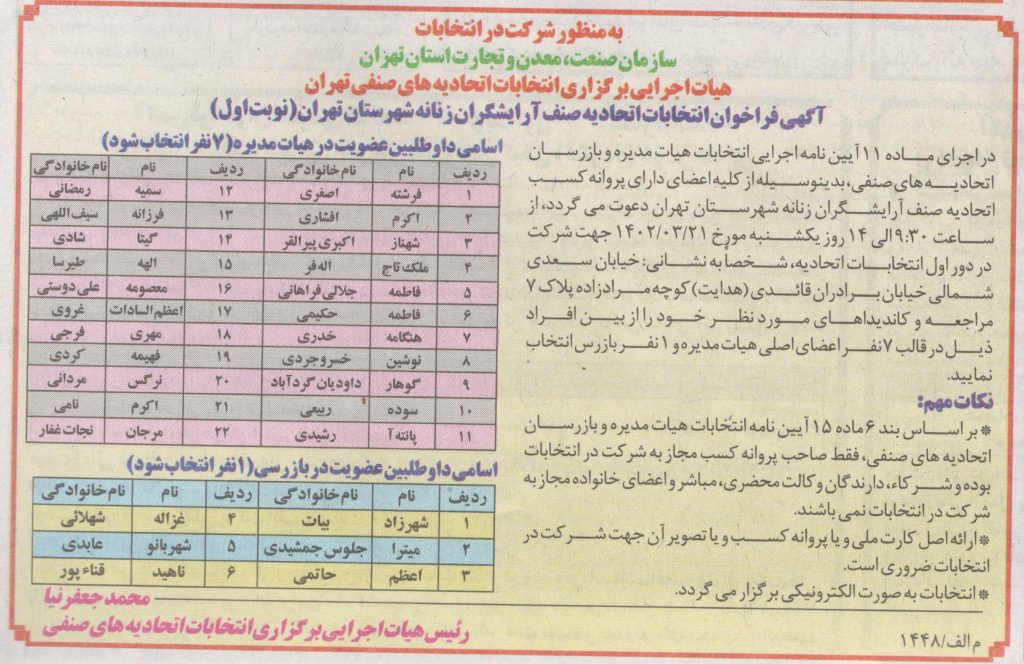 به منظور شرکت در انتخابات
سازمان صنعت، معدن و تجارت استان تهران
هیات اجرایی برگزاری انتخابات اتحادیه های صنفی تهران
آگهی فراخوان انتخابات اتحادیه صنف آرایشگران زنانه شهرستان تهران (نوبت اول)
در اجرای ماده ۱۱ آیین نامه اجرایی انتخابات هیات مدیره و بازرسان
اتحادیه های صنفی، بدینوسیله از کلیه اعضای دارای پروانه کسب
اتحادیه صنف آرایشگران زنانه شهرستان تهران دعوت می گردد، از
ساعت ۹:۳۰ الی ۱۴ روز یکشنبه مورخ ۱۴۰۲/۰۳/۲۱ جهت شرکت
در دور اول انتخابات اتحادیه، شخصاً به نشانی: خیابان سعدی
شمالی خیابان برادران قائدی (هدایت) کوچه مرادزاده پلاک ۷
مراجعه و کاندیداهای مورد نظر خود را از بین افراد
ذیل در قالب ۷ نفر اعضای اصلی هیات مدیره و ۱ نفر بازرس انتخاب
نمایید.
نکات مهم:
* بر اساس بند ۶ ماده ۱۵ آیین نامه انتخابات هیات مدیره و بازرسان
اتحادیه های صنفی، فقط صاحب پروانه کسب مجاز به شرکت در انتخابات
بوده و شرکاء، دارندگان وکالت محضری، مباشر و اعضای خانواده مجاز به
شرکت در انتخابات نمی باشند.
* ارائه اصل کارت ملی و یا پروانه کسب و یا تصویر آن جهت شرکت در
انتخابات ضروری است.
* انتخابات به صورت الکترونیکی برگزار می گردد.
اسامی داوطلبین عضویت در هیات مدیره (۷ نفر انتخاب شود)
ردیف نام نام خانوادگی ردیف نام نام خانوادگی
۱ فرشته اصغری ۱۲ سمیه رمضانی
۲ اکرم افشاری ۱۳ فرزانه سیف اللهی
۳ شهناز اکبری پیرالقر ۱۴ گیتا شادی
۴ ملک تاج اله فر ۱۵ الهه طیرسا
۵ فاطمه جلالی فراهانی ۱۶ معصومه علی دوستی
۶ فاطمه حکیمی ۱۷ اعظم السادات غروی
۷ هنگامه خدری ۱۸ مهری فرجی
۸ نوشین خسروجردی ۱۹ فهیمه کردی
۹ گوهار داودیان گردآباد ۲۰ نرگس مردانی
۱۰ سوده ربیعی ۲۱ اکرم نامی
۱۱ پانته آ رشیدی ۲۲ مرجان نجات غفار
اسامی داوطلبین عضویت در بازرسی (۱ نفر انتخاب شود)
ردیف نام نام خانوادگی ردیف نام نام خانوادگی
۱ شهرزاد بیات ۴ غزاله شهلائی
۲ میترا جلوس جمشیدی ۵ شهربانو عابدی
۳ اعظم حاتمی ۶ ناهید قناء پور
محمد جعفرنیا
رئیس هیات اجرایی برگزاری انتخابات اتحادیه های صنفی
م الف/۱۴۴۸